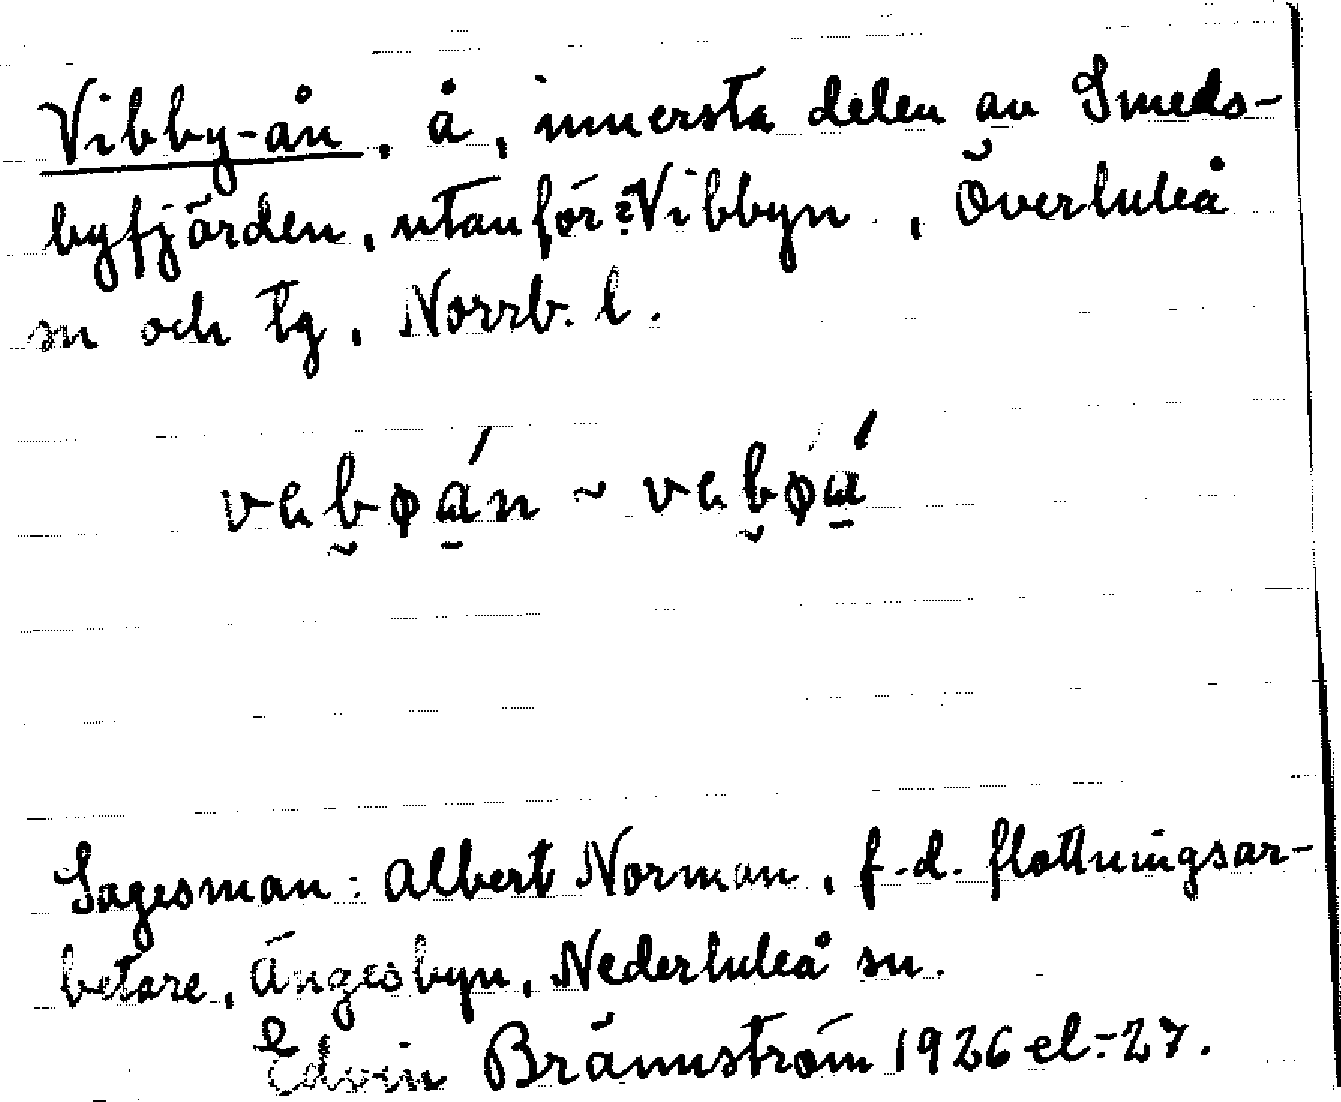 Vibby-ån, å, innersta delen av Smeds-
byfjärden, utanför Vibbyn, Överluleå
sn och tg, Norrb. l.
Sagesman: Albert Norman, f.d. flottningsar-
betare, Ängesbyn, Nederluleå sn.
Edvin Brännström 1926 el.-27.